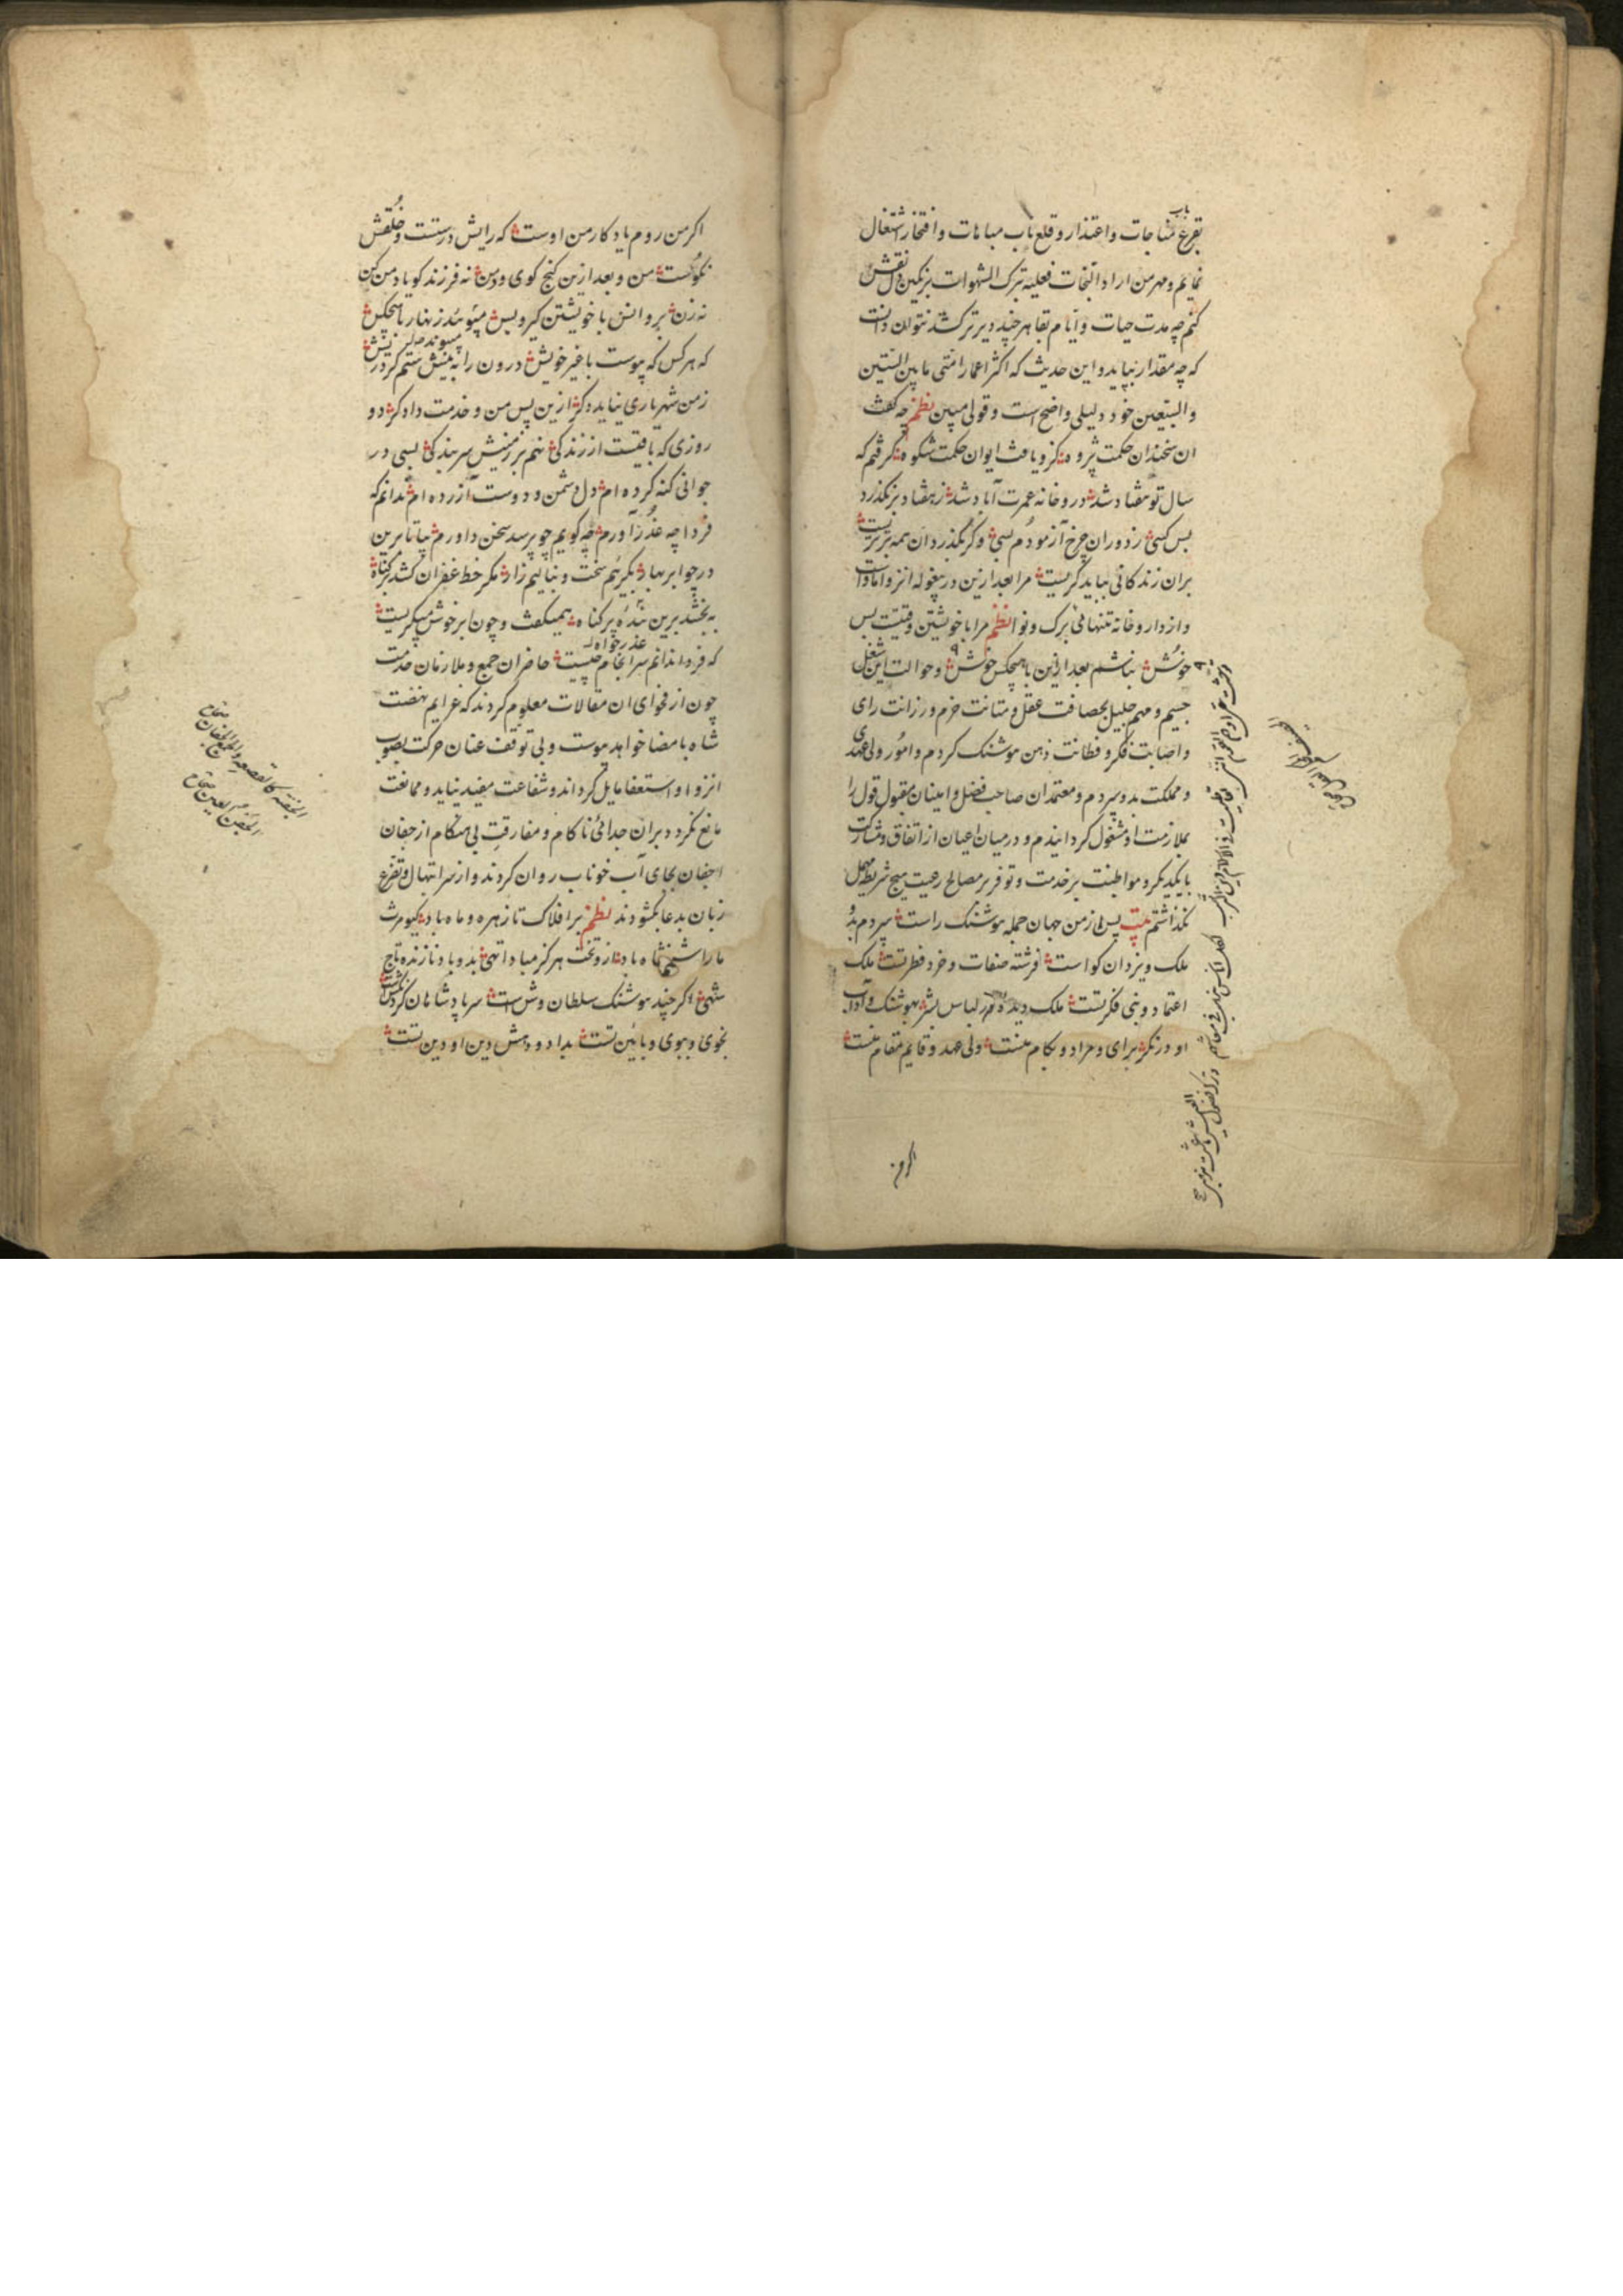 بقرع باب مناجات واعتذار و قلع باب مباهات وافتخار اشتغال
نمایم و مهر من اراد النجات فعلیه بترک الشهوات بر نگین دل نقش
کنم چه مدت حیات و ایام بقا هر چند دیرتر کشد نتوان دانست
که چه مقدار بپاید و این حدیث که اکثر اعمار امتی ما بین الستین
والسبعین خود دلیلی واضح است و قولی مبین نظم چه گفت
ان سخندان حکمت پژوه کزو یافت ایوان حکمت شکوه گرفتم که
سال تو هفتاد شد در و خانه عمرت آباد شد ز هفتاد بر نگذرد
بس کسی ز دوران چرخ آزمودم بسی و گر بگذرد ان همه بترست
بران زندگانی بباید گریست مرا بعد ازین در بیغوله انزوا
و از دار و خانه تنها بی برگ و نوا نظم مرا با خویشتن وقتیست بس
خوش نباشم بعد ازین با هیچکس خوش و حوالت این شغل
جسیم و مهم جلیل بحصافت عقل و متانت حزم و رزانت رای
و اصابت فکر و فطانت ذهن هوشنگ کردم و امور ولی عهدی
و مملکت بدو سپردم و معتمدان صاحب فضل و امینان مقبول قول را
بملازمت او مشغول گردانیدم و در میان اعیان از اتفاق و مشارکت
با یکدیگر و مواظبت بر خدمت و توفیر مصالح رعیت هیچ شریطه مهمل
نگذاشتم بیت پس از من جهان جمله هوشنگ راست سپردم بدو
ملک و یزدان گواست فرشته صفات و خرد فطرتست ملک
اعتماد و نبی فکرتست ملک دیده در لباس بشر بهوشنگ و آداب
او درنگر برای و مراد و بکام منست ولی عهد و قایم مقام منست
اگر من
اگر من روم یادگار من اوست که رایش درستست و خلقش
نکوست من و بعد ازین کنج کوی و من نه فرزند گو یاد من کن
نه زن برو انس با خویشتن گیر و بس مپیوند زنهار با هیچکس
که هرکس که پیوست با غیر خویش درون را به نیش ستم کرد ریش
ز من شهریاری نیاید دگر ازین پس من و خدمت دادگر دو
روزی که باقیست از زندگی نهم بر زمینش سر بندگی بسی در
جوانی گنه کرده ام دل دشمن و دوست آزرده ام ندانم که
فردا چه عذر آورم چه گویم چو پرسد سخن داورم بیا تا برین
در چو ابر بهار بگرییم سخت و بنالیم زار مگر خط غفران کشد بر گناه
ببخشد برین بنده پر گناه همیگفت و چون ابر خوش میگریست
که فردا ندانم سرانجام چیست حاضران جمع و ملازمان خدمت
چون از فحوای ان مقالات معلوم کردند که عزایم نهضت
شاه بامضا خواهد پیوست و بی توقف عنان حرکت بصوب
انزوا و استعفا مایل گرداند و شفاعت مفید نیاید و ممانعت
مانع نگردد بران جدائی ناکام و مفارقت بی هنگام از جفان
اجفان بجای آب خوناب روان کردند و از سر ابتهال و تضرع
زبان بدعا بگشودند نظم بر افلاک تا زهره و ماه باد کیومرث
ما را شهنشاه باد ازو تخت هرگز مبادا تهی بدو باد نازنده تاج
شهی اگر چند هوشنگ سلطان وش است سر پادشاهان گردنکش است
بخوی و ببوی و بایین تست بداد و دهش دین او دین تست
الجفنة کالقصعة والجمع الجفان صحاح
الجفن العین صحاح